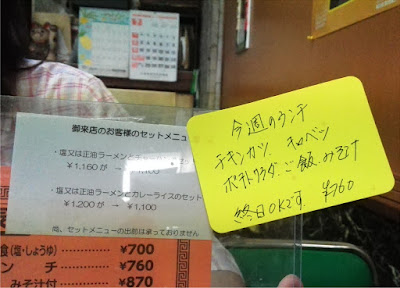 御来店のお客様のセットメニュー
・塩又は正油ラーメンと
¥1,160が →
・塩又は正油ラーメンとカレーライスのセット
¥1,200が → ¥1,100
尚、セットメニューの出前は承っておりません
食(塩・しょうゆ) ¥700
ンチ ¥760
みそ汁付 ¥870
今週のランチ
チキンカツ キャベツ
ポテトサラダ、ご飯、みそ汁
終日OKです。 ¥760